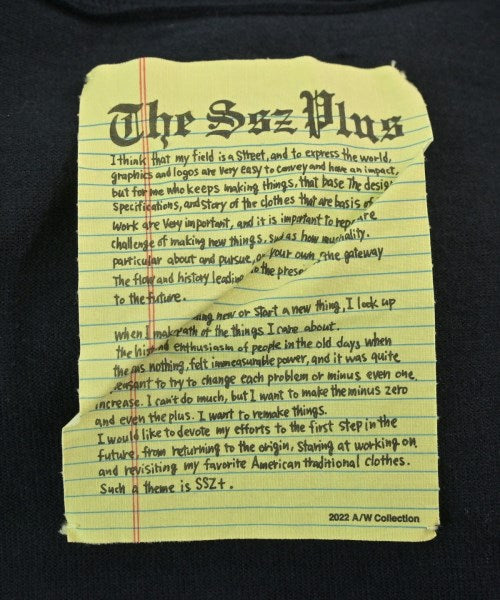 The Ssz Plus
I think that my field is a Street, and to express the world,
graphics and logos are very easy to convey and have an impact,
but for me who keeps making things, that base the design
specifications, and story of the clothes that are basis of
work are very important, and it is important to
challenge of making new things. such as how
particular about and pursue, or your own, the gateway
The flow and history leading to the
to the future.
new or start a new thing, I look up
when I of the things I care about.
the enthusiasm of people in the old days when
the nothing, felt immeasurable power, and it was quite
to try to change each problem or minus even one
increase. I can't do much, but I want to make the minus zero
and even the plus. I want to remake things.
I would like to devote my efforts to the first step in the
future, from returning to the origin, Staring at working on
and revisiting my favorite American traditional clothes.
Such a theme is SSZ+.
2022 A/W Collection